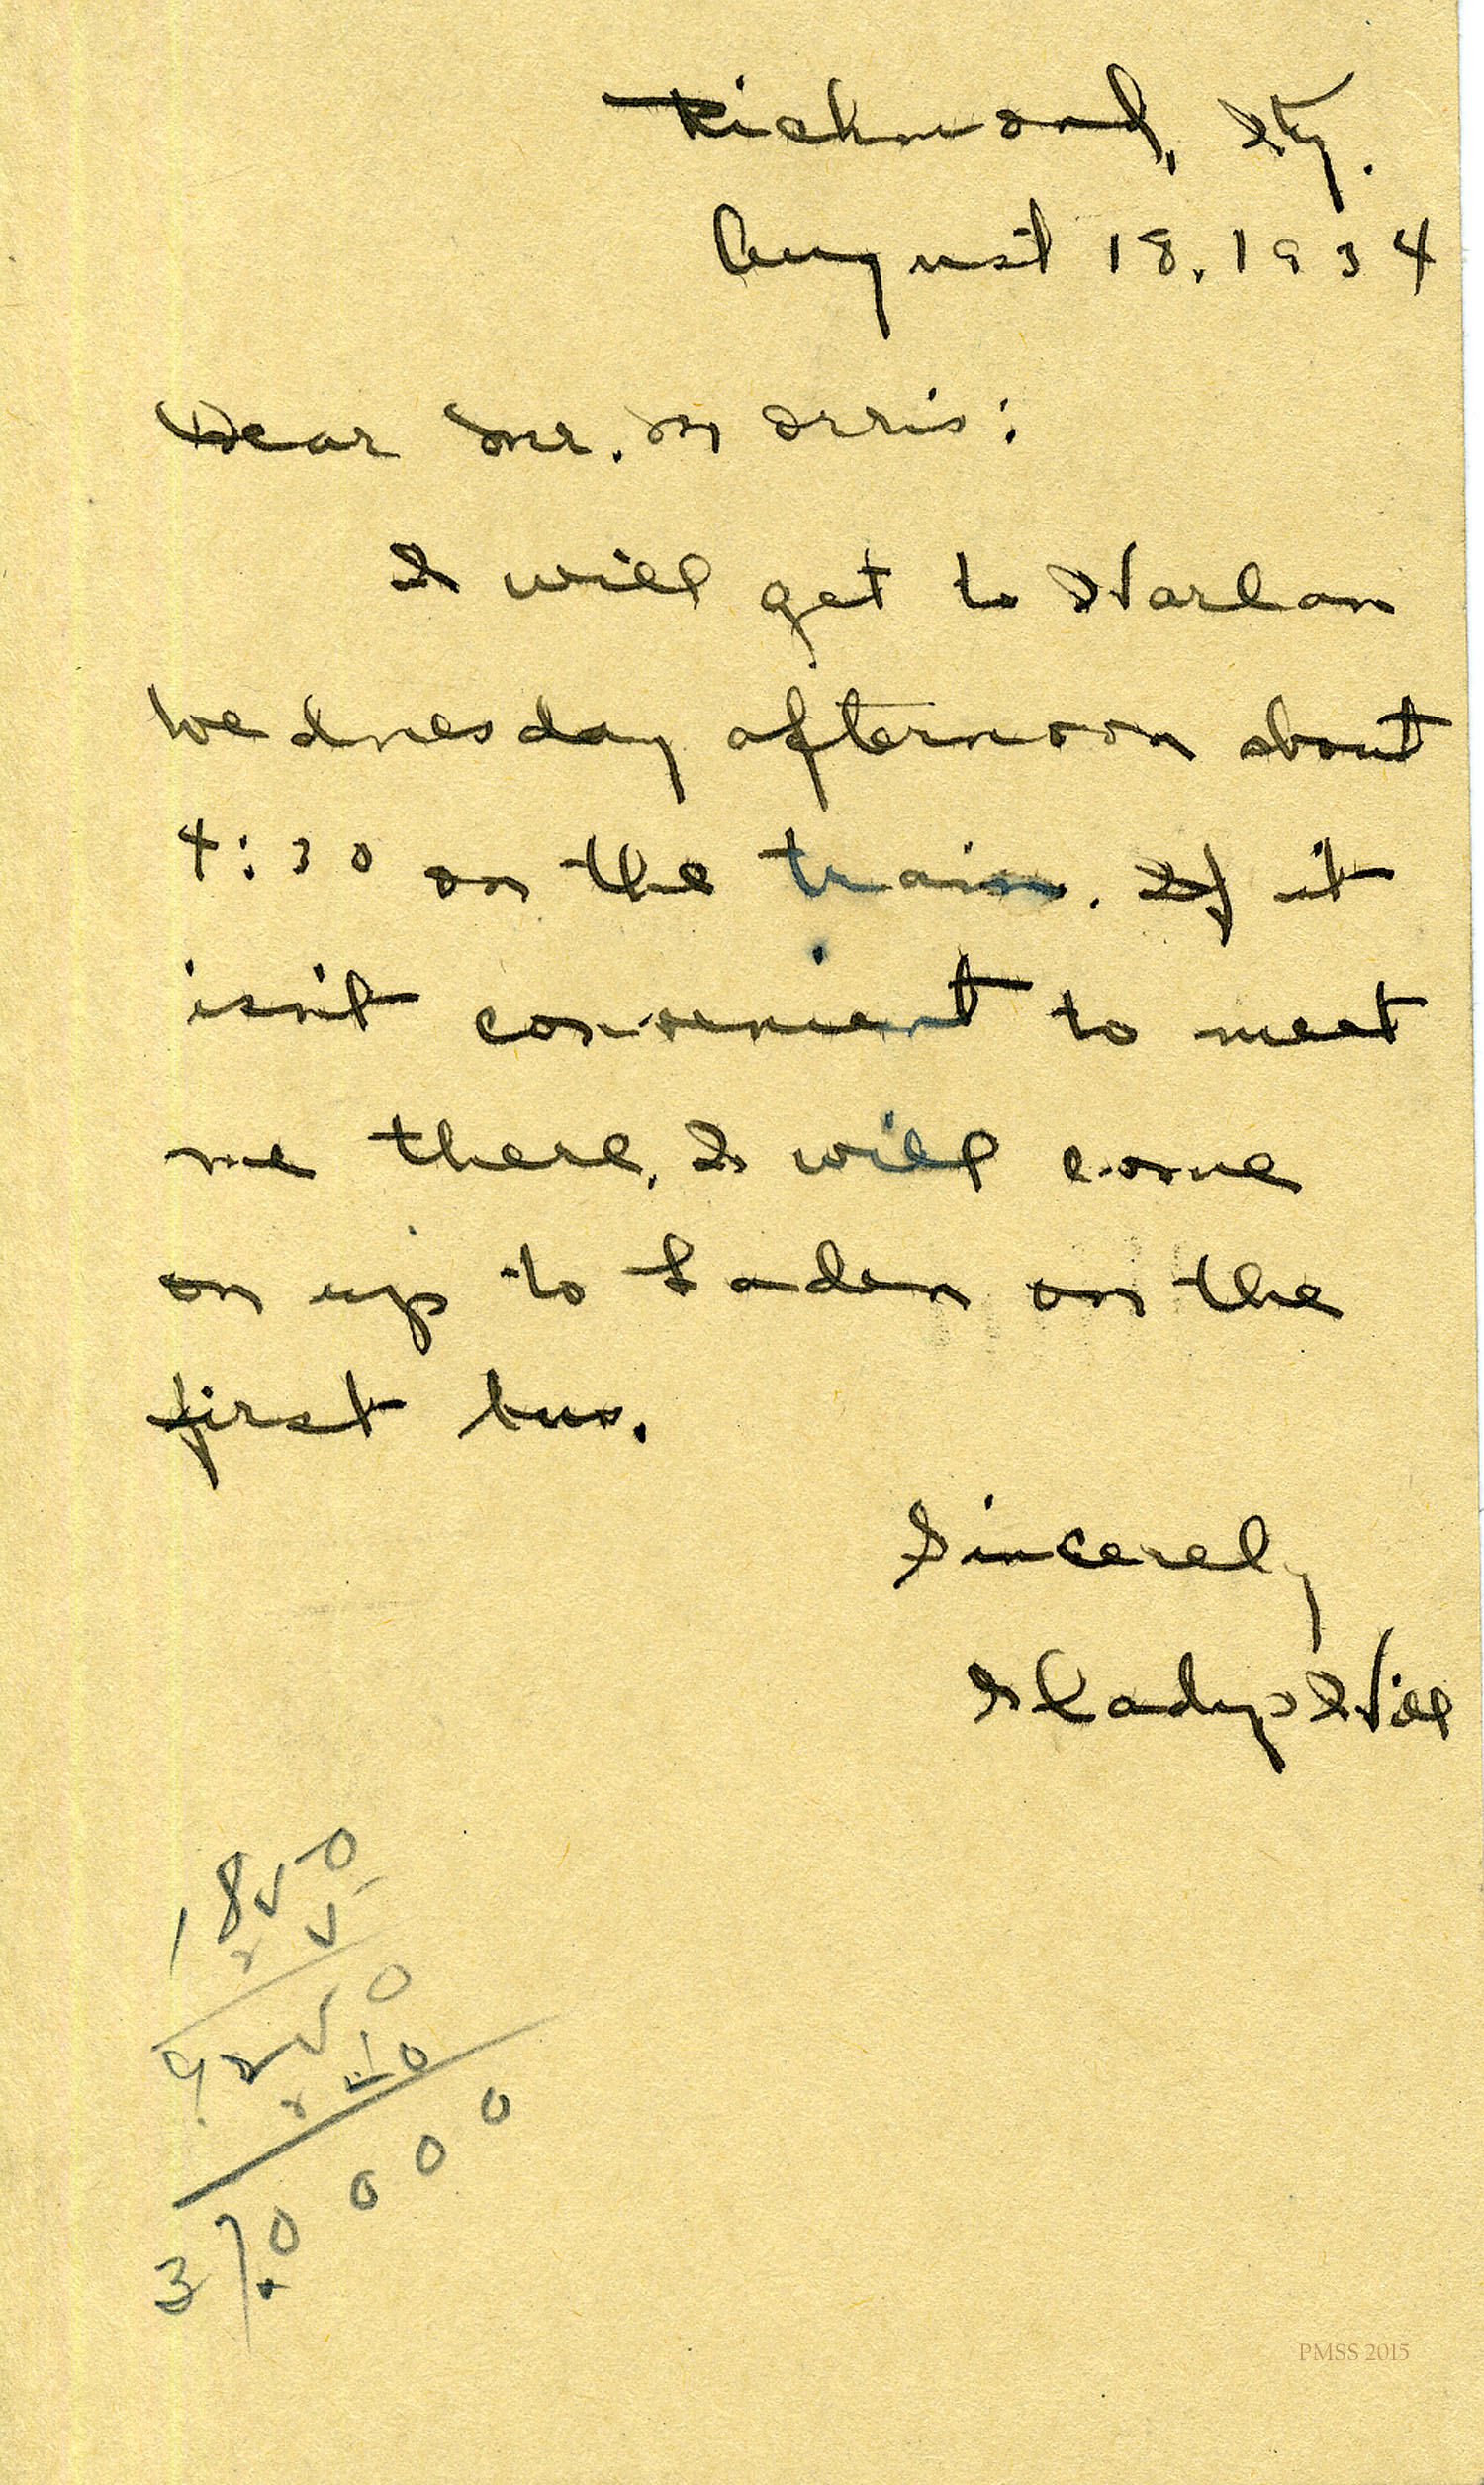 Richmond, Ky.
August 18, 1934
Dear Mr. Morris:
I will get to Harlan
Wednesday afternoon about
4:30 on the train. If it
isn't convenient to meet
me there, I will come
on up to Laden on the
first bus.
Sincerely
Gladys Hill
1850
5
9250
40
370000
PMSS 2015